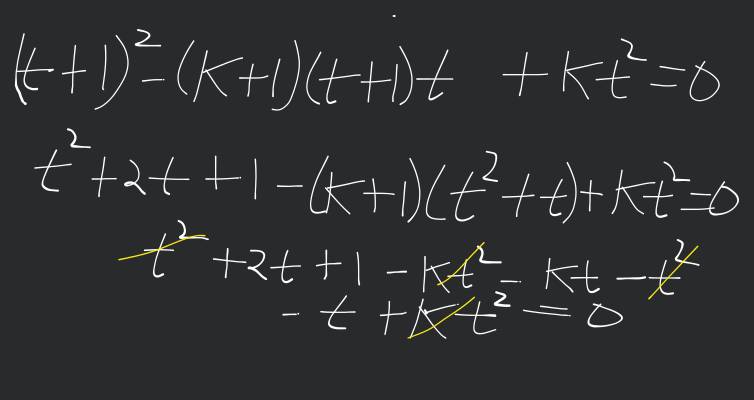 (t+1)²-(k+1)(t+1)t +kt²=0
t²+2t+1-(k+1)(t²+t)+kt²=0
t²+2t+1-kt²-kt-t²
-t+kt²=0